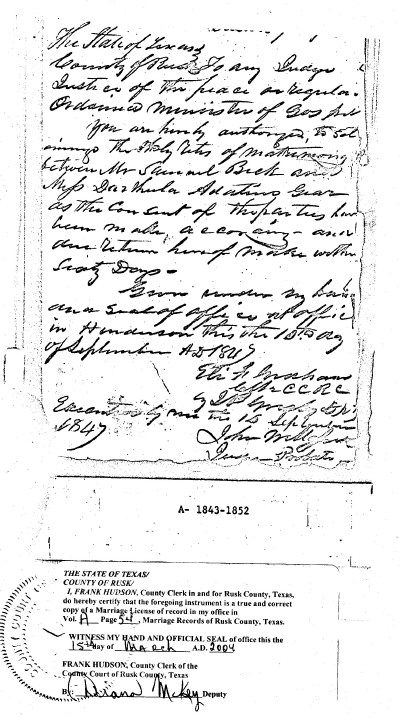 The State of Texas
County of Rusk To any Judge
Justice of the peace or regular
Ordained Minister of Gospel
You are hereby authorized to sol
emnize the Holy Rites of matrimony
between Mr Samuel Beck and
Miss Darthula Adaline Gear
as the Consent of the parties have
been made according and
due return hereof make within
Sixty Days
Given under my hand
and seal of office at office
in Henderson this the 10th day
of September AD 1847
Clk C C R C
Executed by me the 15 September
1847
John
Probate
A- 1843-1852
THE STATE OF TEXAS/
COUNTY OF RUSK/
I, FRANK HUDSON, County Clerk in and for Rusk County, Texas,
do hereby certify that the foregoing instrument is a true and correct
copy of a Marriage License of record in my office in
Vol. A Page 54, Marriage Records of Rusk County, Texas.
WITNESS MY HAND AND OFFICIAL SEAL of office this the
15th day of March A.D. 2004
FRANK HUDSON, County Clerk of the
County Court of Rusk County, Texas
By: Diana McKey Deputy